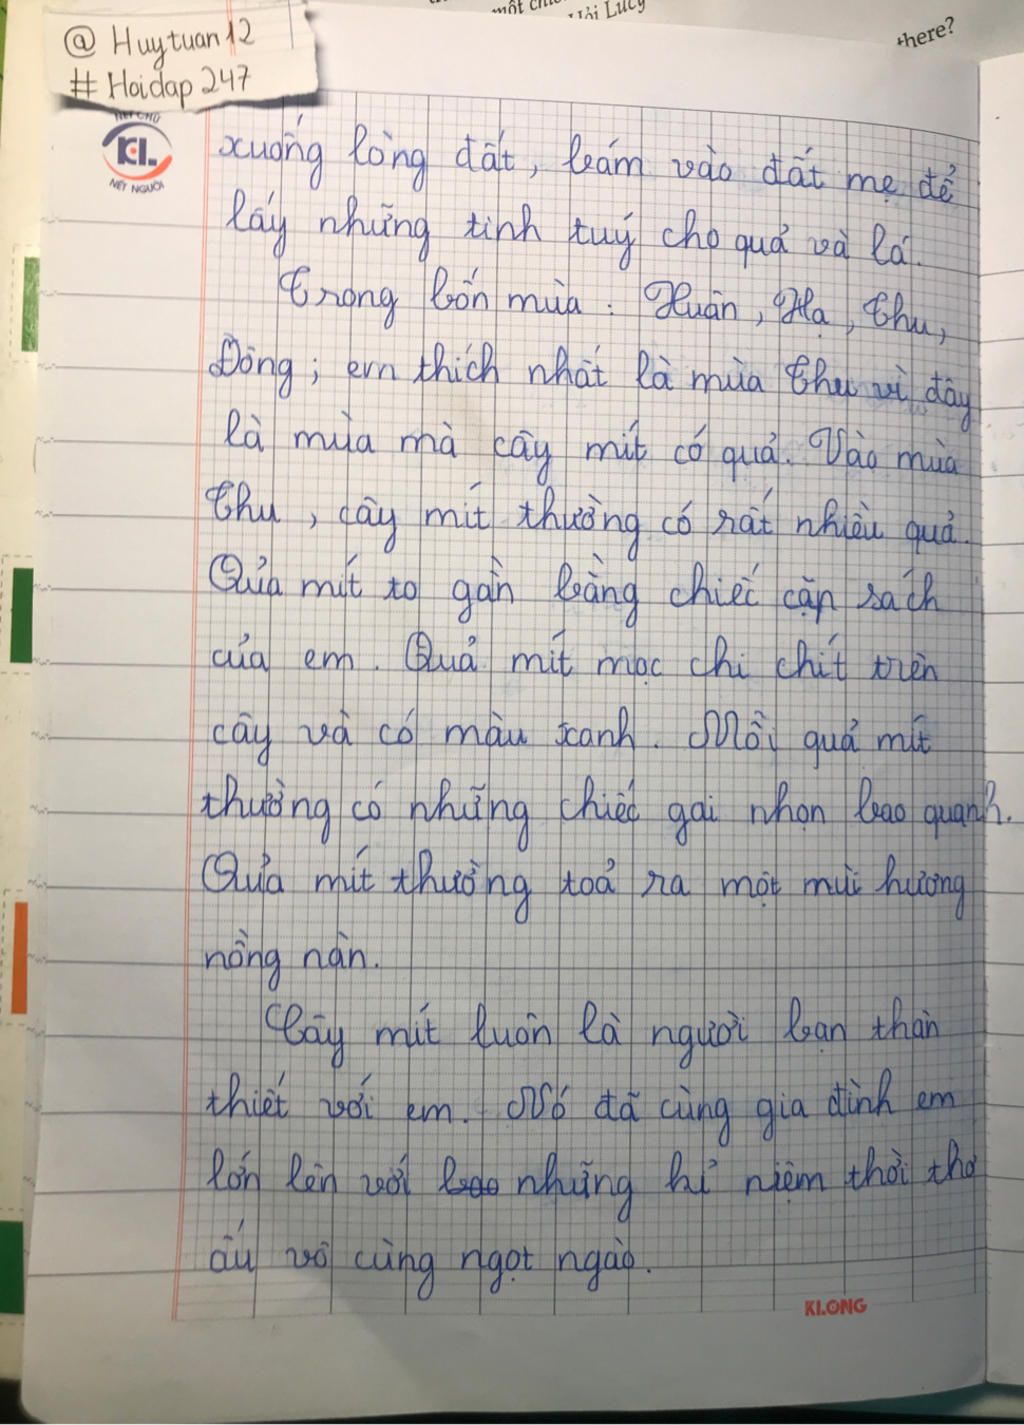 một
Hỏi Lucy
there?
@ Huytuan12
# Hoidap247
NÉT CHỮ
KL
NẾT NGƯỜI
xuống lòng đất, bám vào đất mẹ để
lấy những tinh tuý cho quả và lá.
Trong bốn mùa : Xuân, Hạ, Thu,
Đông; em thích nhất là mùa Thu vì đây
là mùa mà cây mít có quả. Vào mùa
Thu, cây mít thường có rất nhiều quả.
Qủa mít to gần bằng chiếc cặp sách
của em. Quả mít mọc chi chít trên
cây và có màu xanh. Mỗi quả mít
thường có những chiếc gai nhọn bao quanh.
Qủa mít thường toả ra một mùi hương
nồng nàn.
Cây mít luôn là người bạn thân
thiết với em. Nó đã cùng gia đình em
lớn lên với bao những kỉ niệm thời thơ
ấu vô cùng ngọt ngào.
KLONG